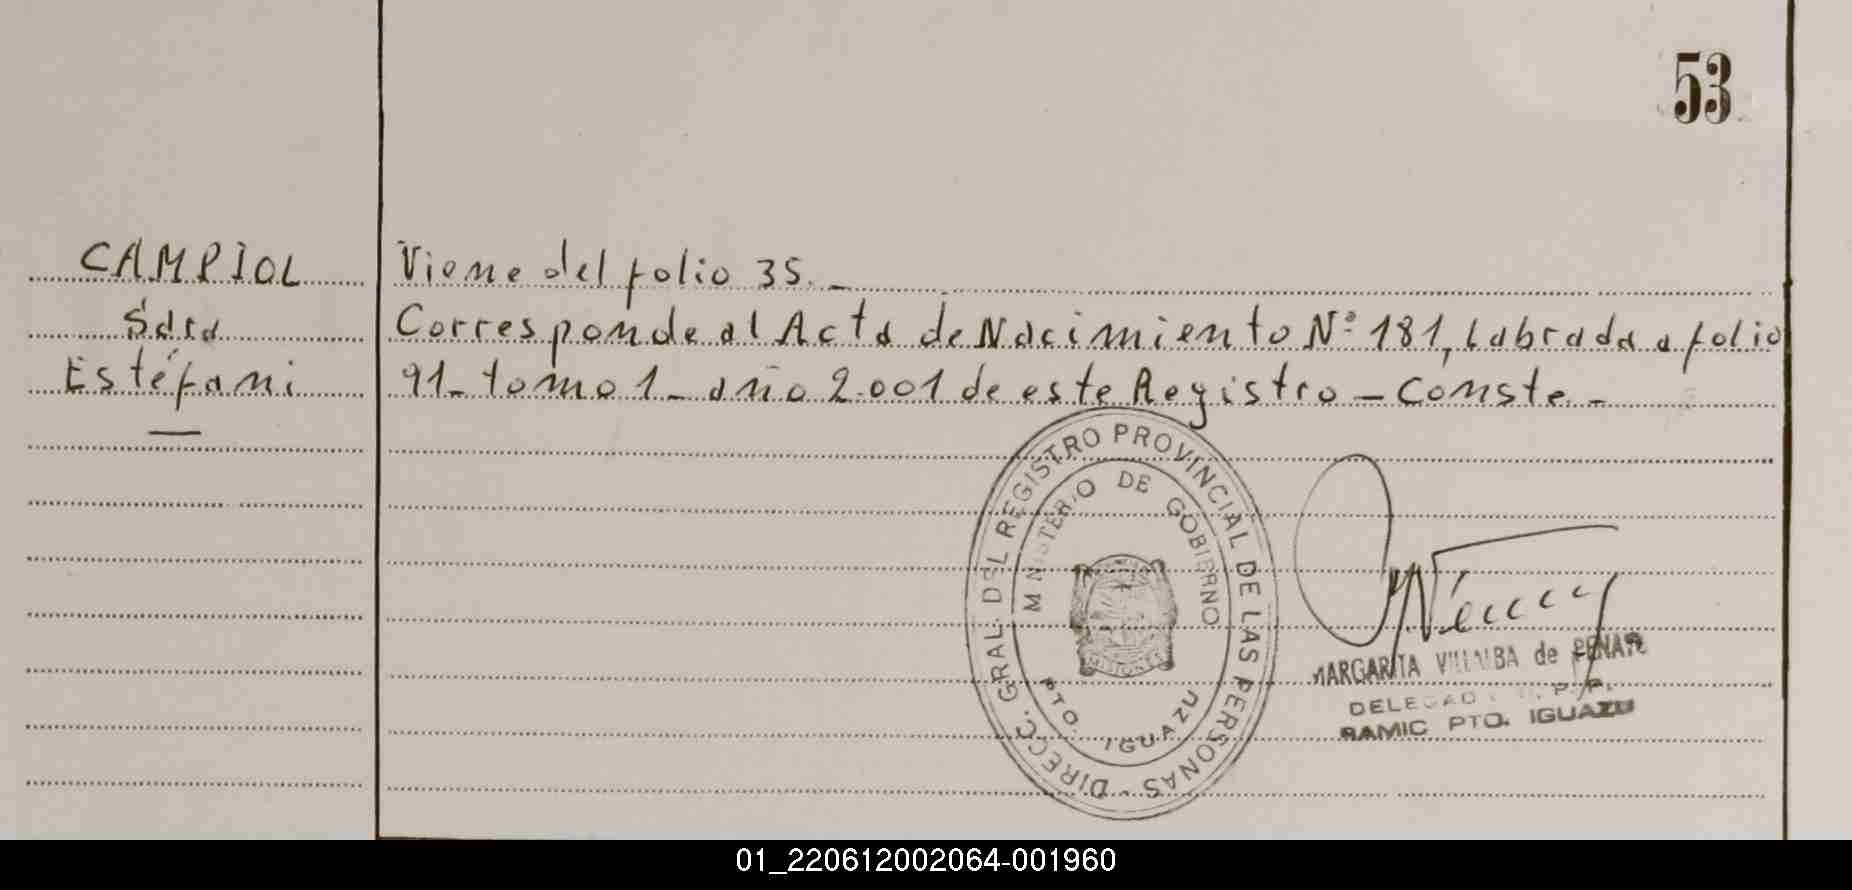 53
CAMPIOL
Sara
Estéfani
Viene del folio 35.-
Corresponde al Acta de Nacimiento N° 181, Labrada a folio
91- tomo 1- año 2.001 de este Registro - Conste.-
DIRECC. GRAL. DEL REGISTRO PROVINCIAL DE LAS PERSONAS -
MINISTERIO DE GOBIERNO
MISIONES
PTO. IGUAZU
MARGARITA VILLALBA de
P.P.
RAMIC PTO. IGUAZU
01_220612002064-001960